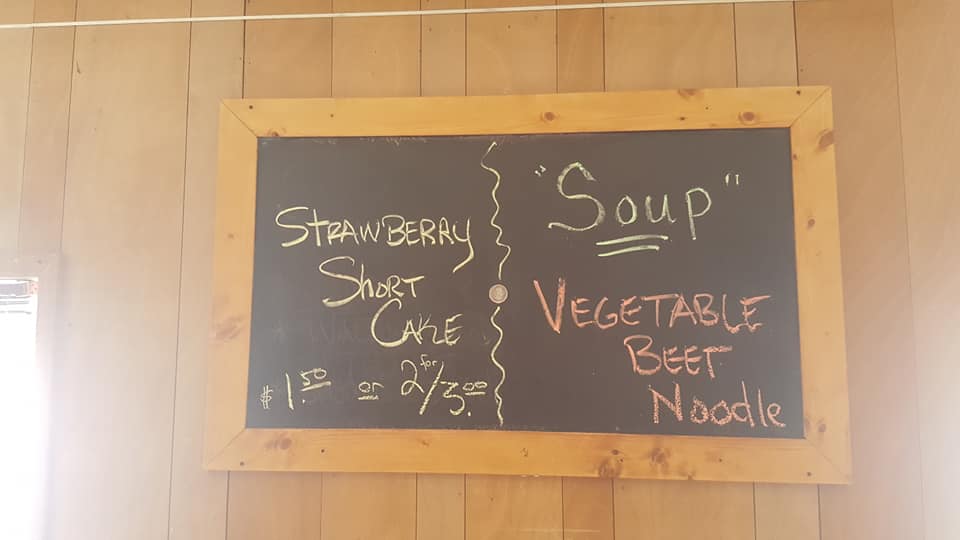 STRAWBERRY
SHORT
CAKE
$1.50 or 2 for/3.00
"Soup"
VEGETABLE
BEEF
Noodle